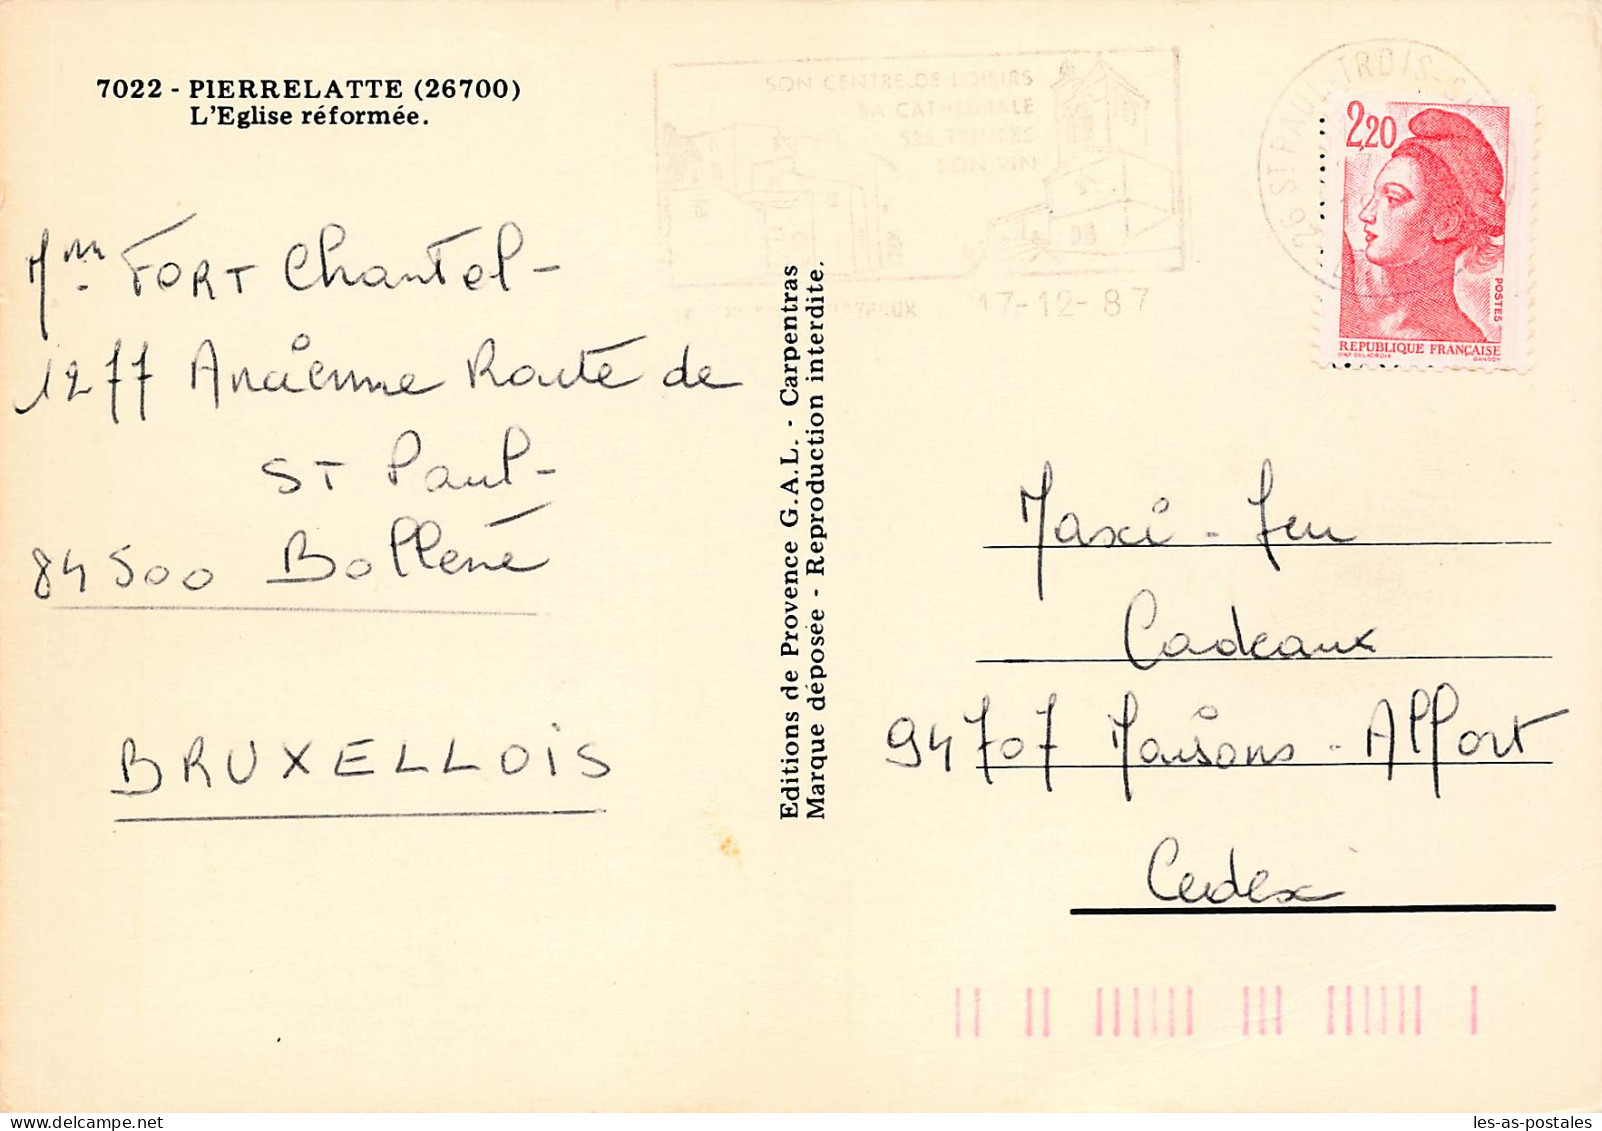 7022 - PIERRELATTE (26700)
L'Eglise réformée.
SON CENTRE DE LOISIRS
SA CATHEDRALE
SES TRUFFES
SON VIN
17-12-87
26 ST PAUL-TROIS-
2,20
POSTES
REPUBLIQUE FRANÇAISE
D'AP DELACROIX GANDON
Mme FORT Chantal -
1277 Ancienne Route de
ST Paul -
84500 Bollène
BRUXELLOIS
Editions de Provence G.A.L. - Carpentras
Marque déposée - Reproduction interdite.
Maxi-Jeu
Cadeaux
94707 Maisons-Alfort
Cedex
les-as-postales